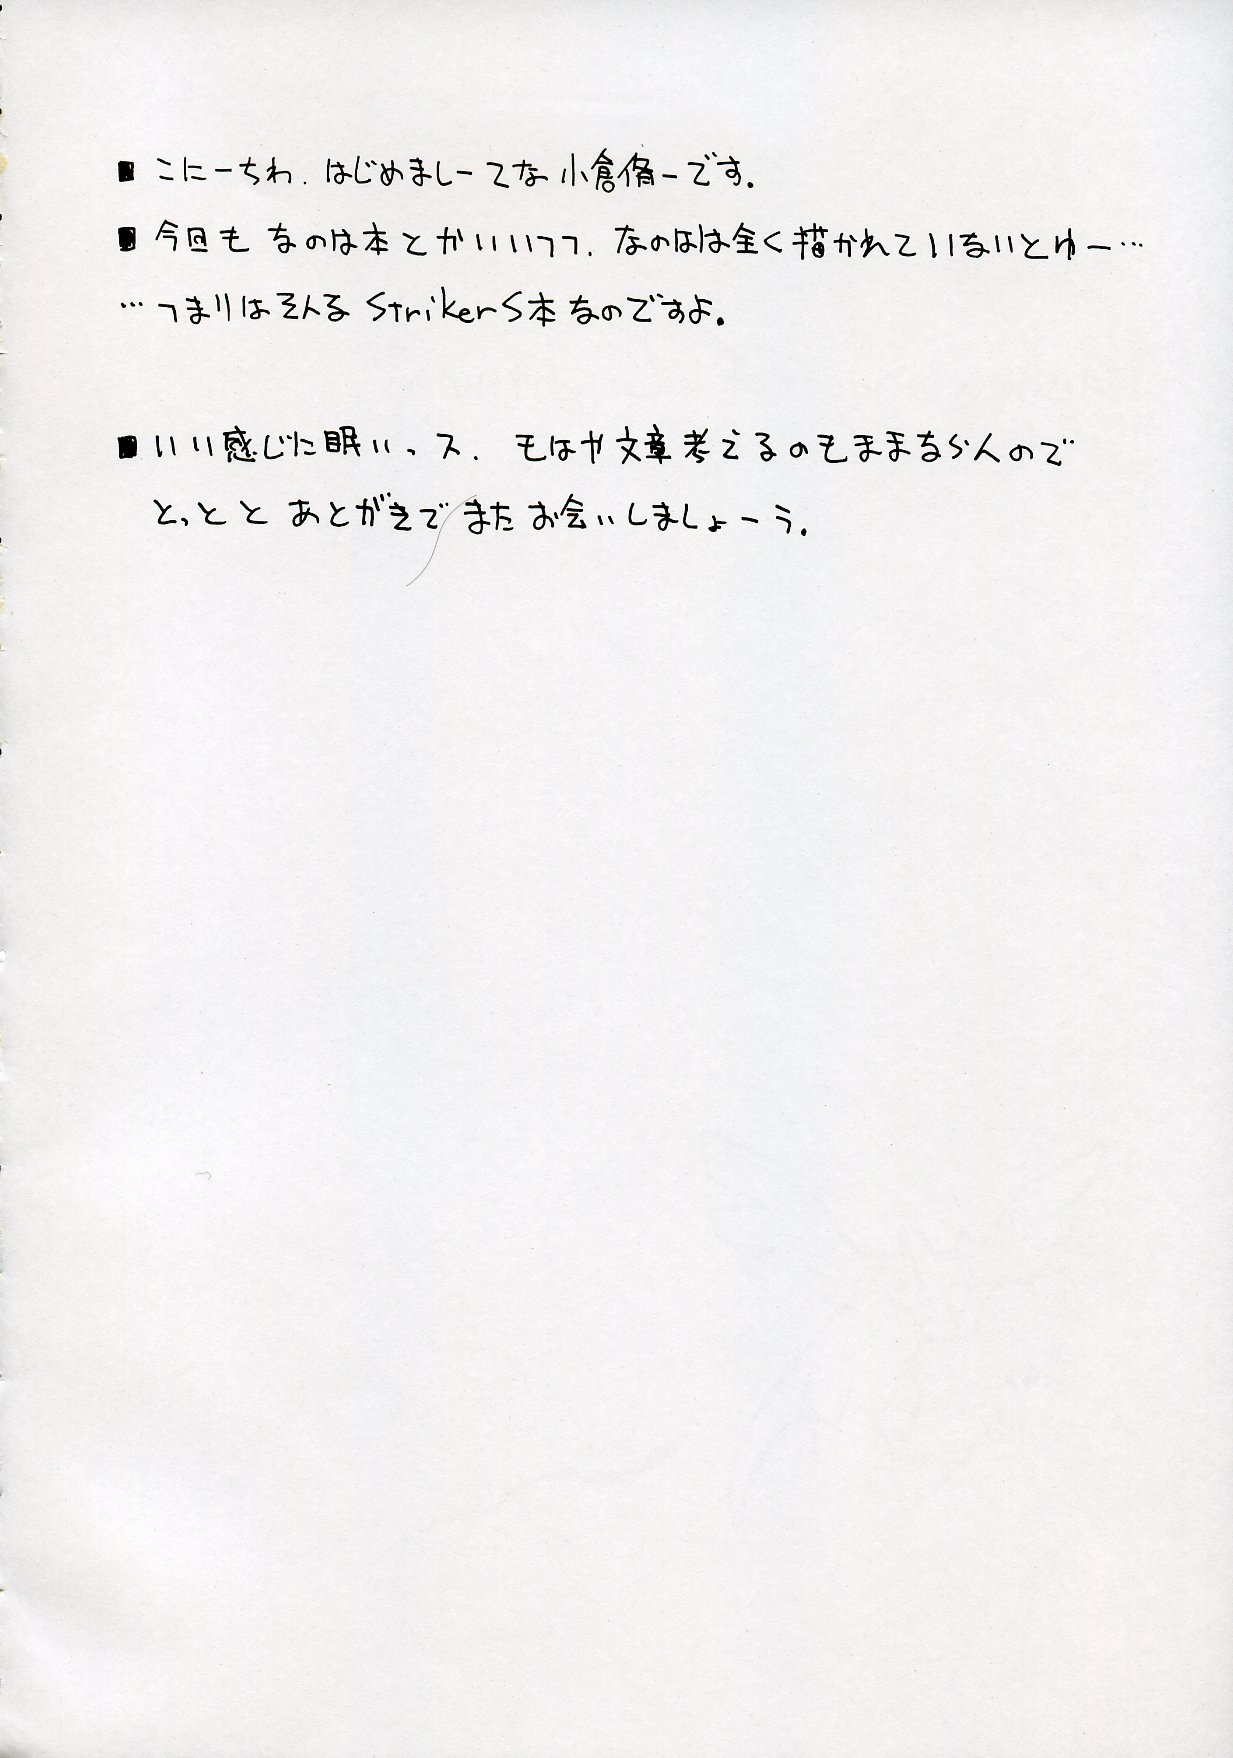 ■ こにーちわ．はじめましーてな 小倉脩一です．
■ 今回も なのは本とかいいつつ．なのはは全く描かれていないとゆー…
…つまりはそんな StrikerS本なのですよ．
■ いい感じに眠いっス．もはや文章考えるのもままならんので
とっとと あとがきで またお会いしましょーう．